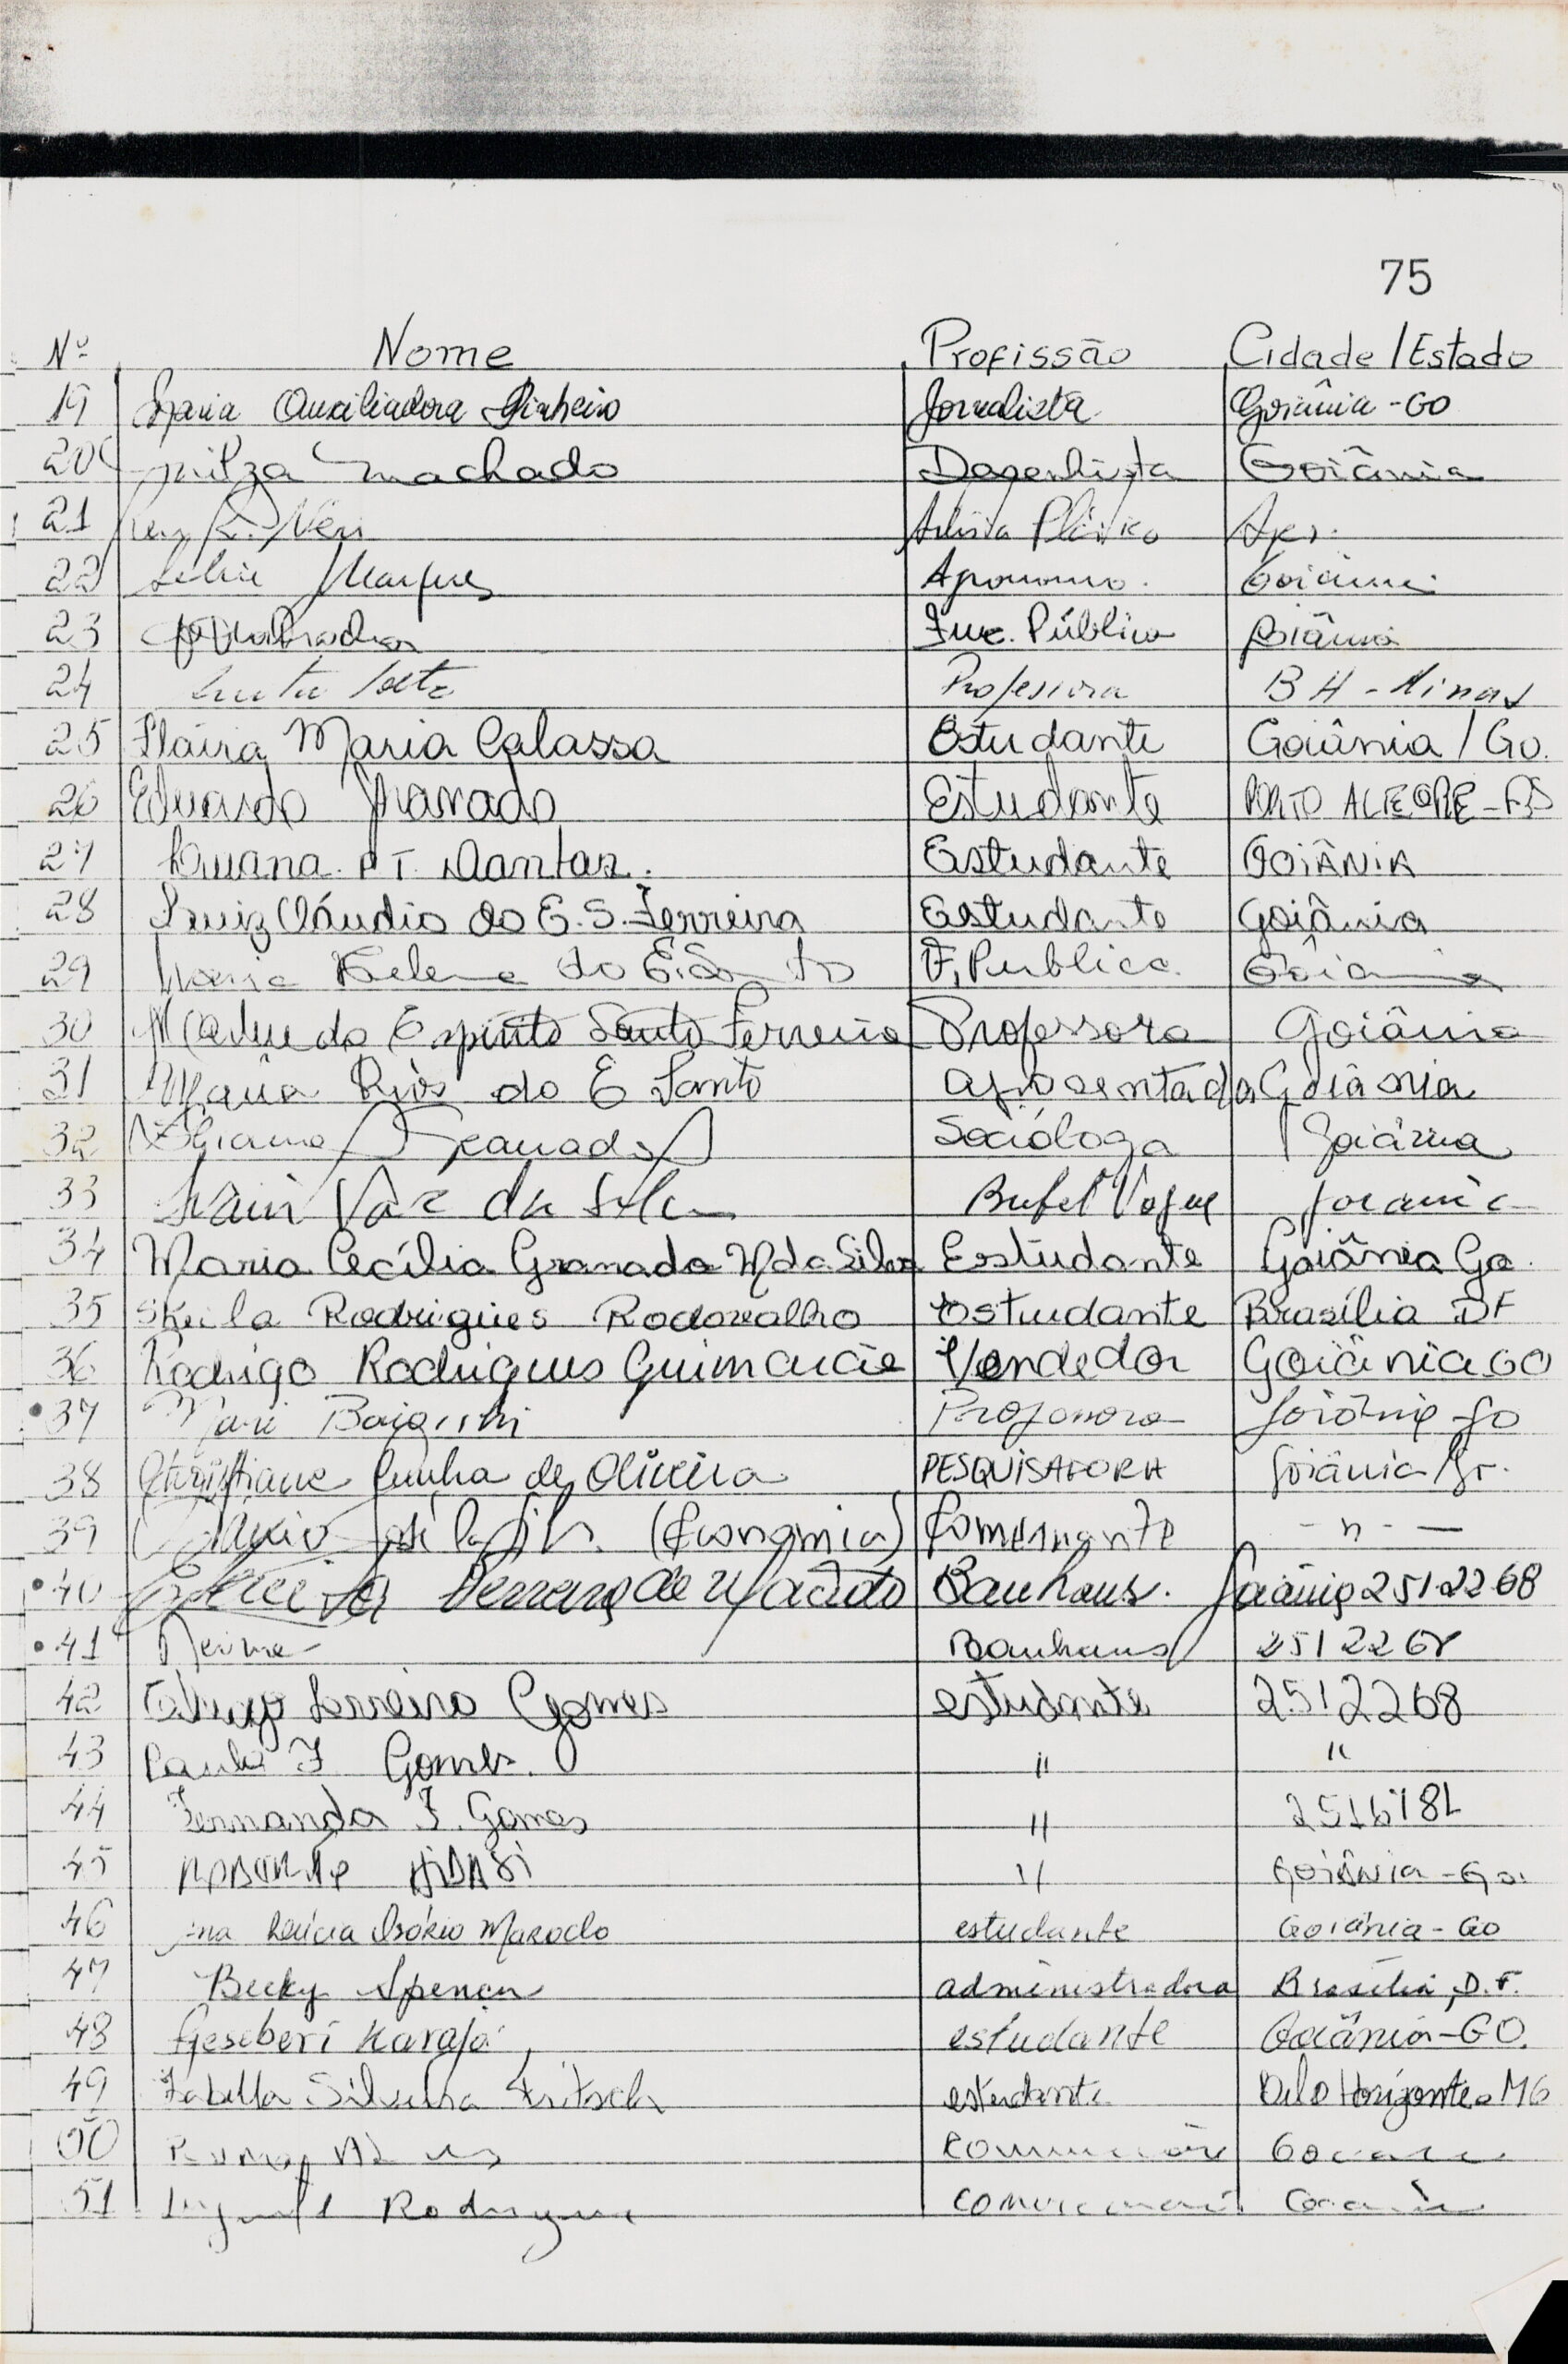 75
Nº Nome Profissão Cidade/Estado
19 Maria Auxiliadora Pinheiro Jornalista Goiânia-GO
20 Nilza Machado Desenhista Goiânia
21 Artista Plástico
22 Marques Agronomo. Goiânia
23 Func. Público Goiânia
24 Professora BH-Minas
25 Maria Calassa Estudante Goiânia/Go.
26 Eduardo Granado Estudante PORTO ALEGRE-RS
27 Luana P T. Dantas. Estudante GOIÂNIA
28 Luiz Cláudio do E.S. Ferreira Estudante Goiânia
29 Maria Helena do E. Santo F. Publica. Goiania
30 do Espirito Santo Ferreira Professora Goiânia
31 Maria Rios do E Santo aposentada Goiânia
32 Granado Socióloga Goiânia
33 Vaz da Silva Bufet Vogue Goiania
34 Maria Cecília Granada M da Silva Estudante Goiânia Go.
35 Sheila Rodrigues Rodovalho Estudante Brasília DF
36 Rodrigo Rodrigues Guimarães Vendedor Goiânia GO
37 Mari Baiocchi Professora Goiânia-Go
38 Christiane Cunha de Oliveira PESQUISADORA Goiânia/Go.
39 José (Economia) Comerciante - " - —
40 Ferreira de Macedo Bauhaus. Goiânia 2512268
41 Bauhaus 2512268
42 Thiago Ferreira Gomes estudante 2512268
43 Paula F Gomes. " "
44 Fernanda F. Gomes "
45 HIDASI " Goiânia-Go.
46 Ana Lúcia Osório Maroclo estudante Goiânia-GO
47 Becky Spencer administradora Brasília, D.F.
48 Geseberi Karajá estudante Goiânia-GO.
49 Izabella Silveira Fritsch estudante Belo Horizonte-MG
50
51 Rodrigues